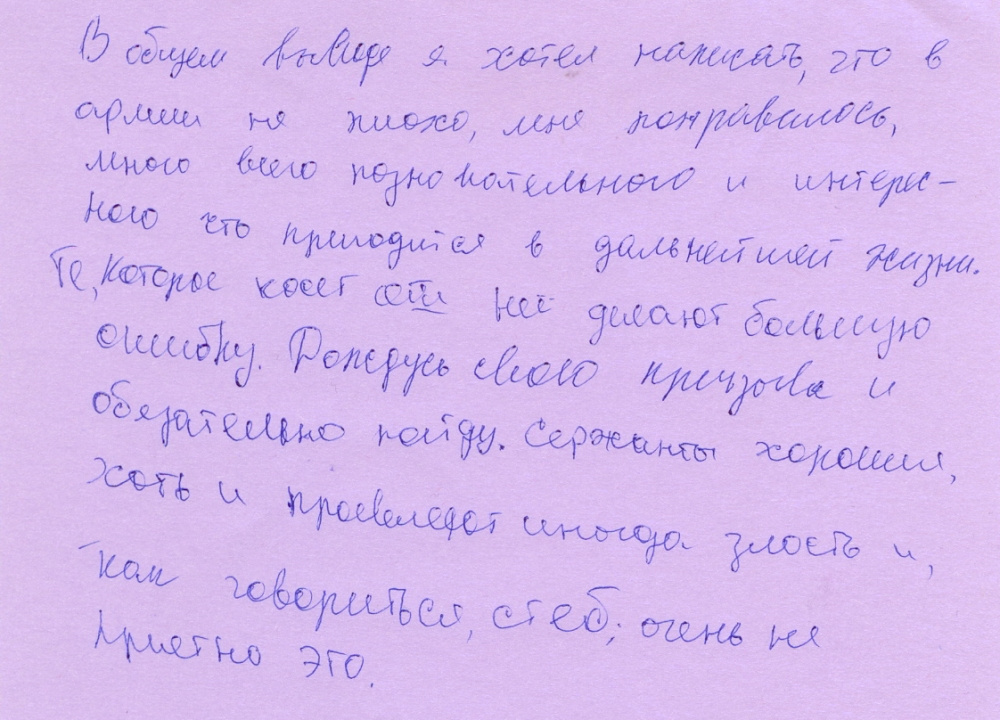 В общем выводе я хотел написать, что в
армии не плохо, мне понравилось,
много всего познавательного и интерес-
ного что пригодится в дальнейшей жизни.
Те, которые косет от неё делают большую
ошибку. Дождусь своего призыва и
обязательно пойду. Сержанты хорошии,
хоть и проевлеют иногда злость и,
как говориться, стеб; очень не
приетно это.